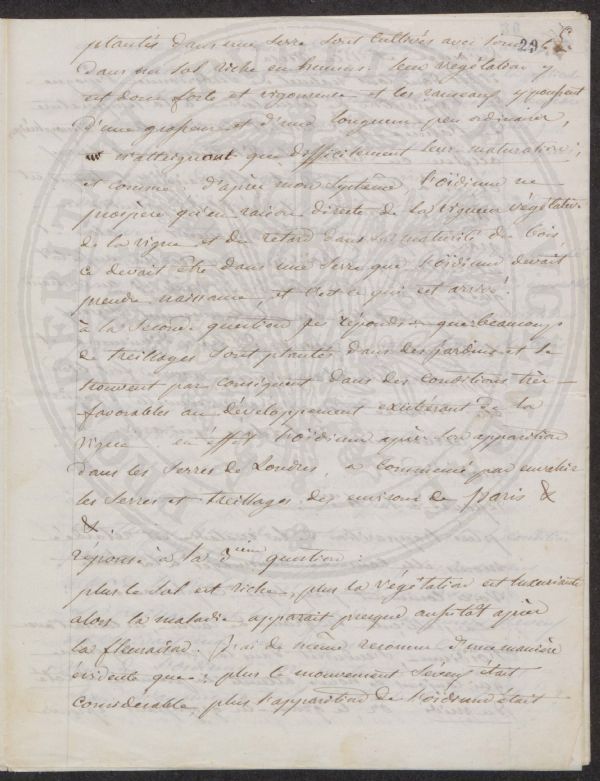 29
plantés dans une serre sont cultivés avec soin
dans un sol riche en humus leur végétation y
est donc forte et vigoureuse et les rameaux y poussent
d'une grosseur et d'une longueur peu ordinaire,
n'atteignant que difficilement leur maturation;
et comme, d'après mon système, l'oïdium ne
prospère qu'en raison directe de la vigueur végétative
de la vigne et du retard dans la maturité du bois,
ce devait être dans une serre que l'oïdium devait
prendre naissance, et c'est ce qui est arrivé!
à la seconde question je répondrai que beaucoup
de treillages sont plantés dans des jardins et se
trouvent par conséquent dans des conditions très
favorables au développement exubérant de la
vigne en effet l'oïdium après son apparition
dans les serres de Londres, a commencé par envahir
les serres et treillages des environs de Paris &
&.
réponse à la 3eme question:
plus le sol est riche, plus la végétation est luxuriante
alors la maladie apparait presque aussitôt après
la fleuraison. J'ai de même reconnu d'une manière
évidente que: plus le mouvement séveux était
considerable plus l'apparition de l'oïdium était